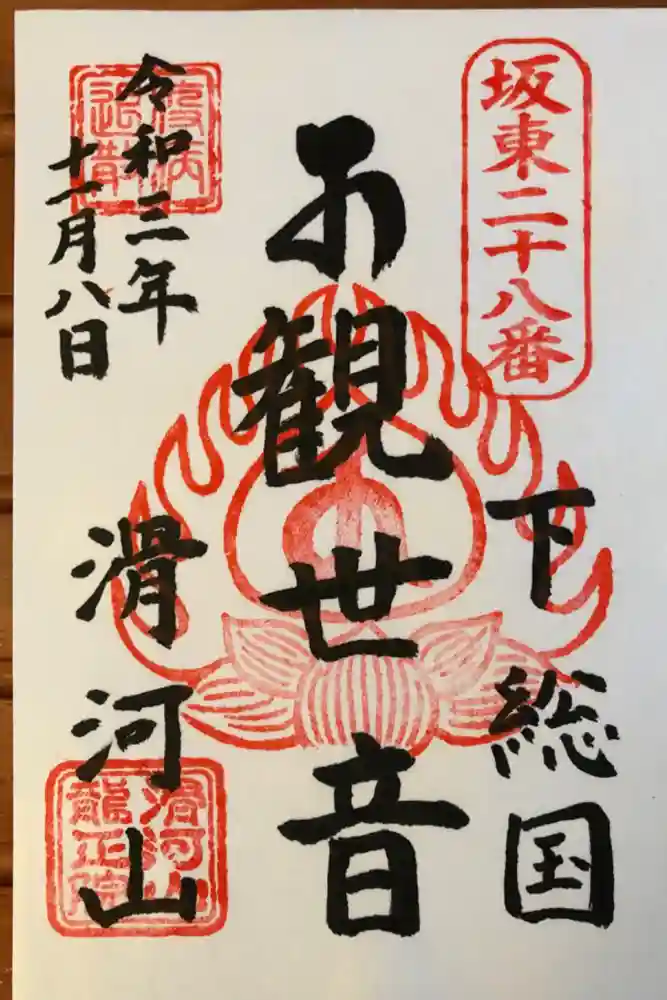 坂東二十八番
下総国
観世音
滑河山
令和三年
十一月八日
疫病
退散
滑河山
龍正院